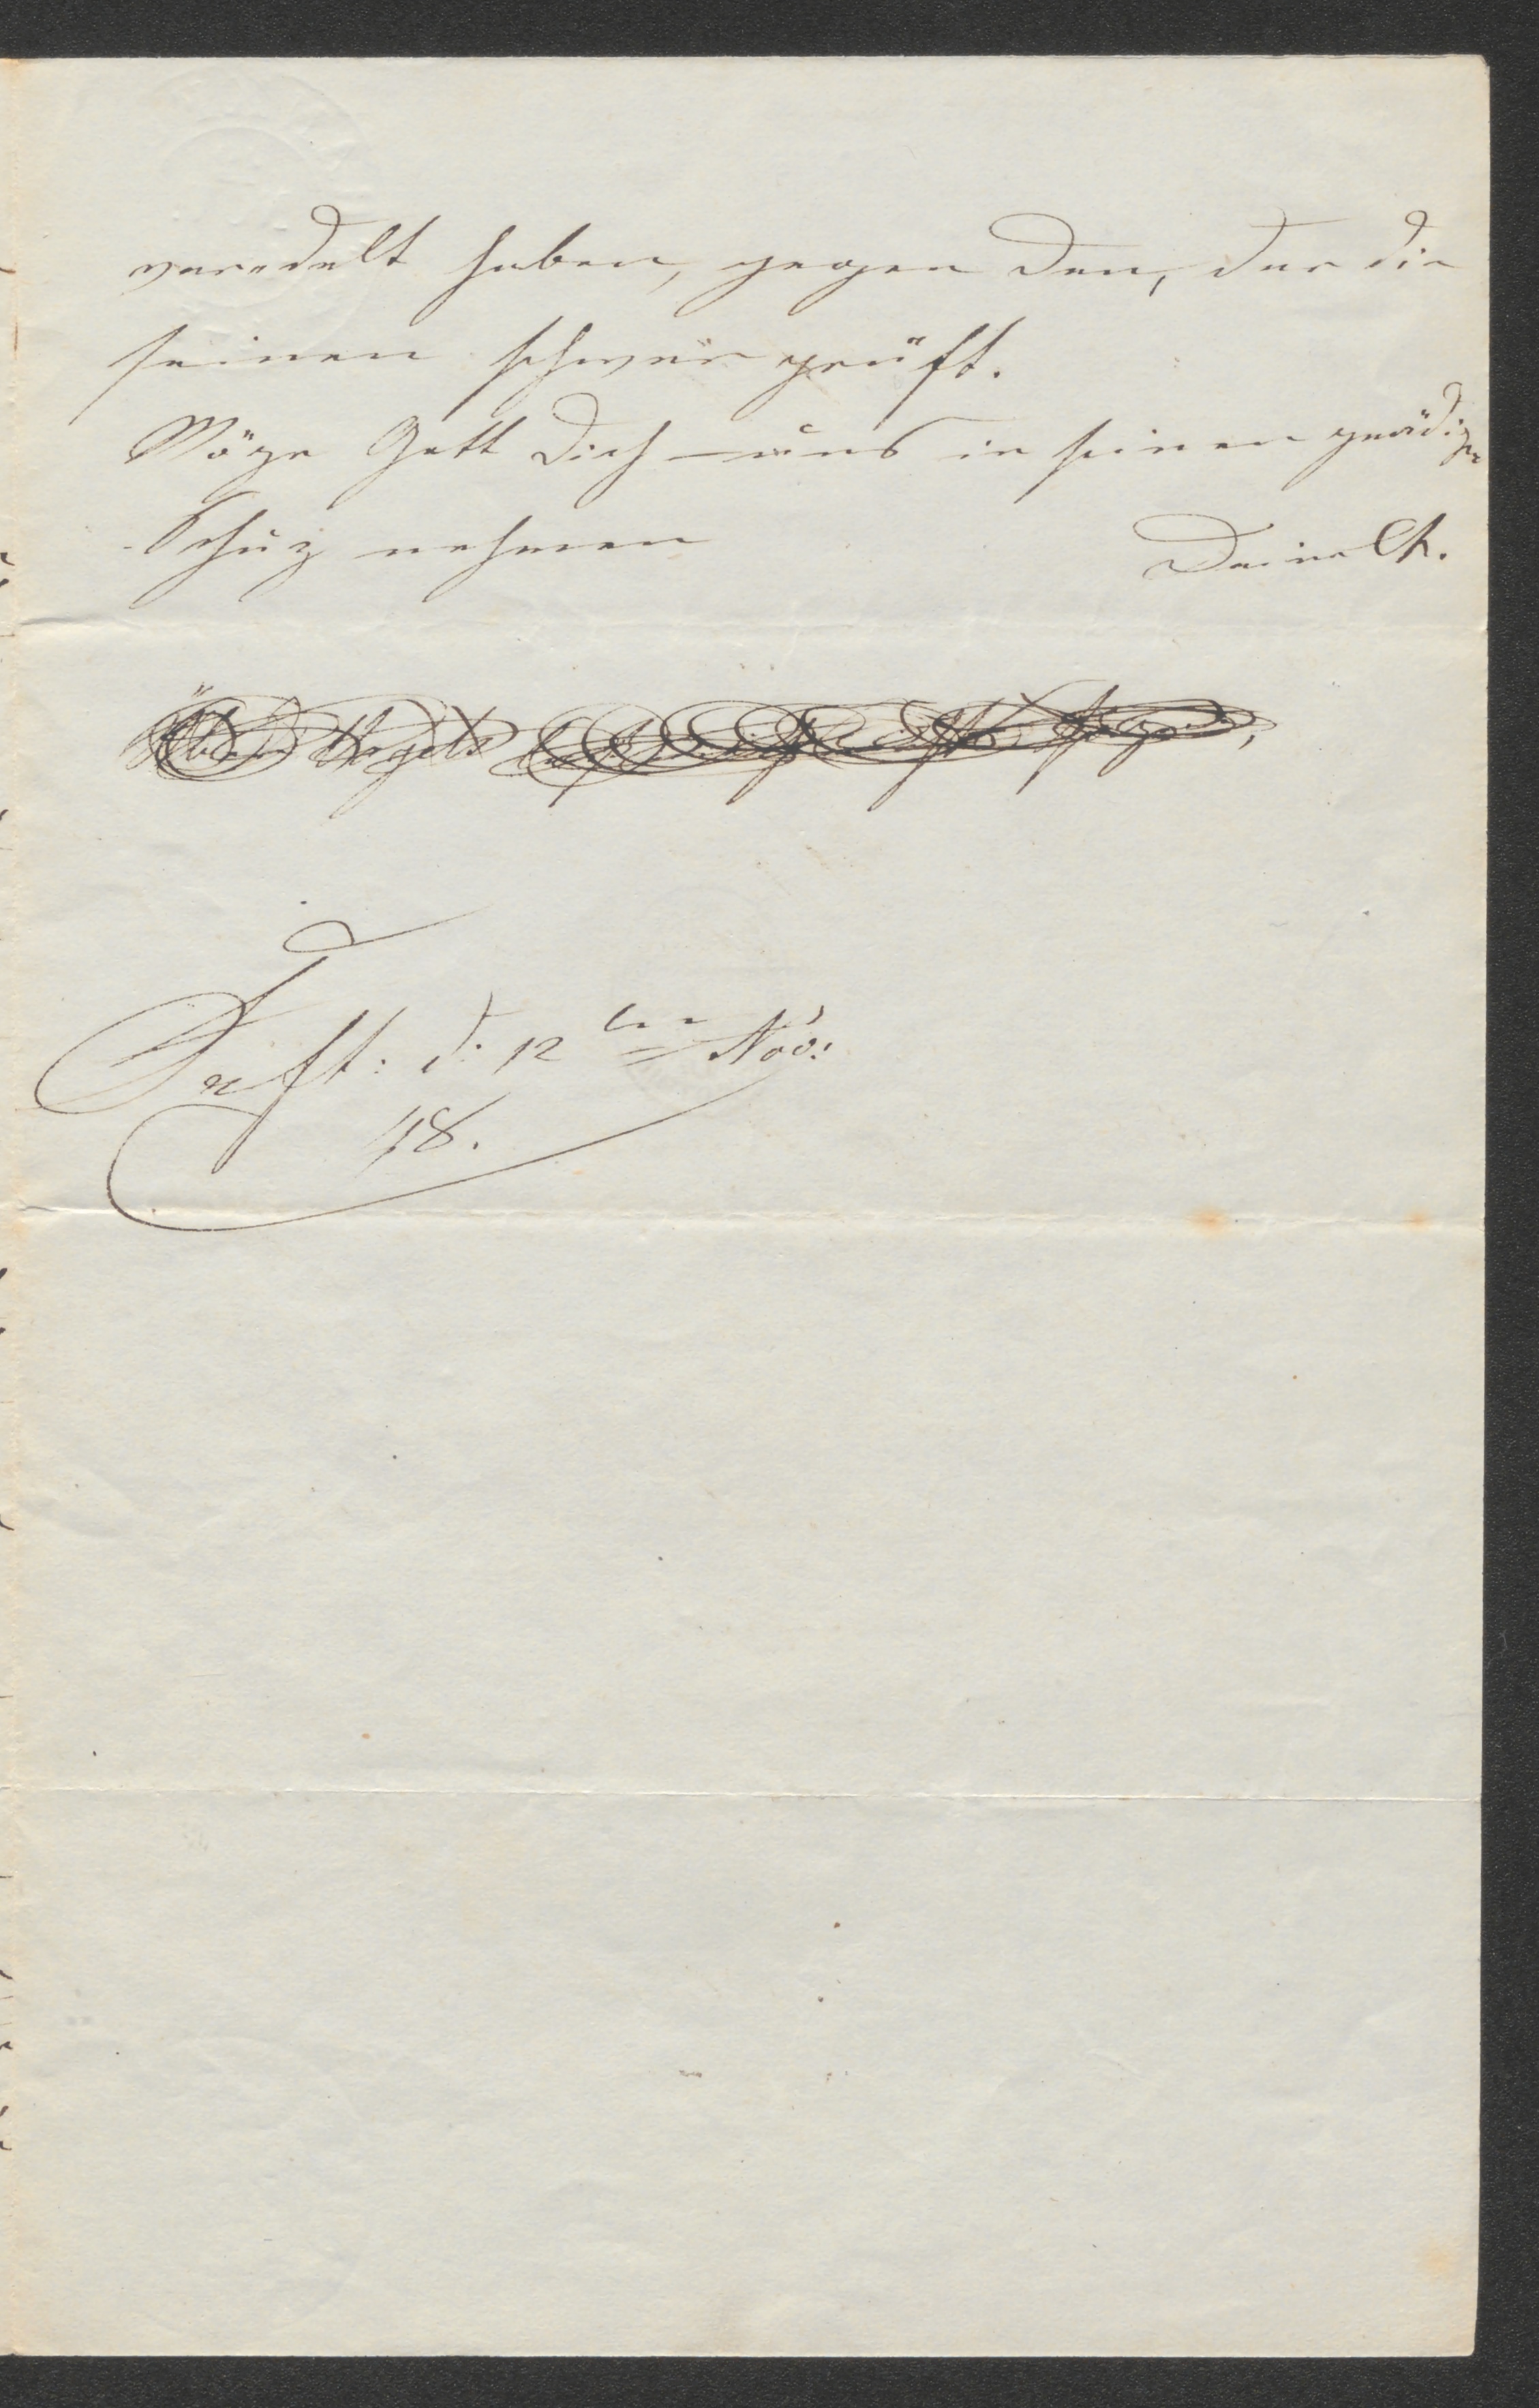 veredelt haben, gegen den, der die
seinen schwer prüft.
Möge Gott Dich – uns in seinen gnädigen
Schuz nehmen Deine Ch.
Über
d: 12ten Nov:
48.